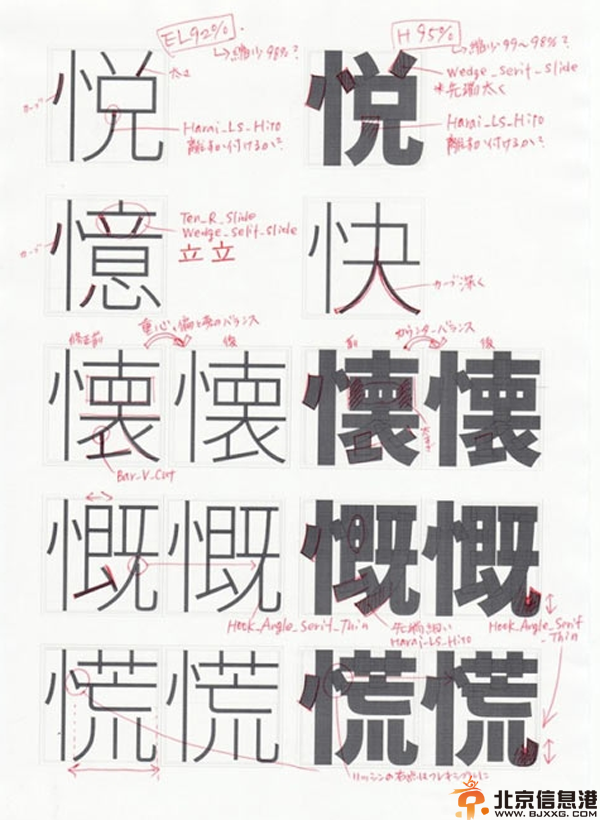 EL92%
H 95%
↳縮少98%?
↳縮少99~98%?
悦
太さ
カーブ
Harai_LS_Hito
離れ付けるか?
悦
Wedge_Serif_Slide
*先端太く
Harai_LS_Hito
離れ付けるか?
憶
カーブ
Ten_R_Slide
Wedge_Serif_Slide
立立
快
カーブ深く
修正前
重心、偏と旁のバランス
後
前
カウンターバランス
後
懐 懐
懐 懐
Bar_V_Cut
慨 慨
慨 慨
Hook_Angle_Serif_Thin
先端細い
Harai_LS_Hito
Hook_Angle_Serif
_Thin
慌 慌
慌 慌
北京信息港
WWW.BJXXG.COM